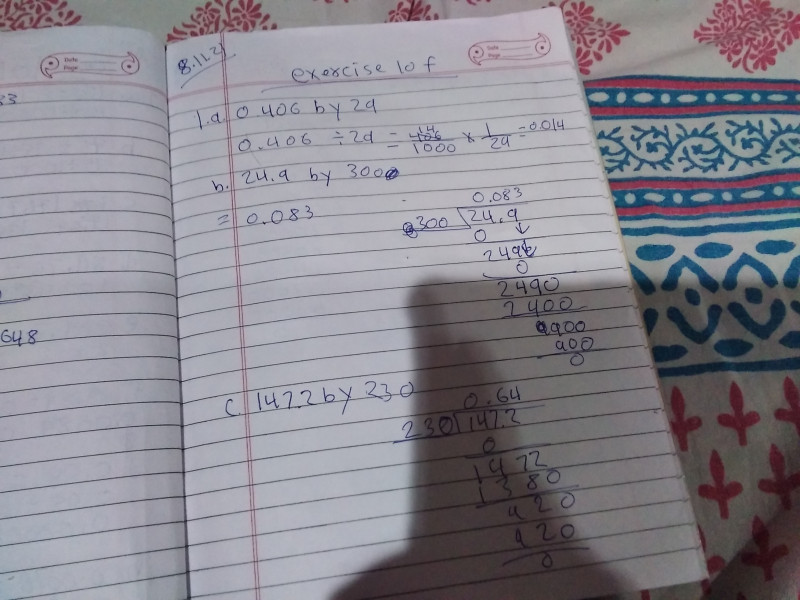 Date
Page
33
648
8.11.21
Date
Page
exercise 10 f
1.a. 0.406 by 29
0.406 ÷ 29 = 14 406/1000 × 1/29 = 0.014
b. 24.9 by 300
= 0.083
0.083
300 24.9
0
249
0
2490
2400
900
900
0
c. 147.2 by 230
0.64
230 147.2
0
1472
1380
920
920
0